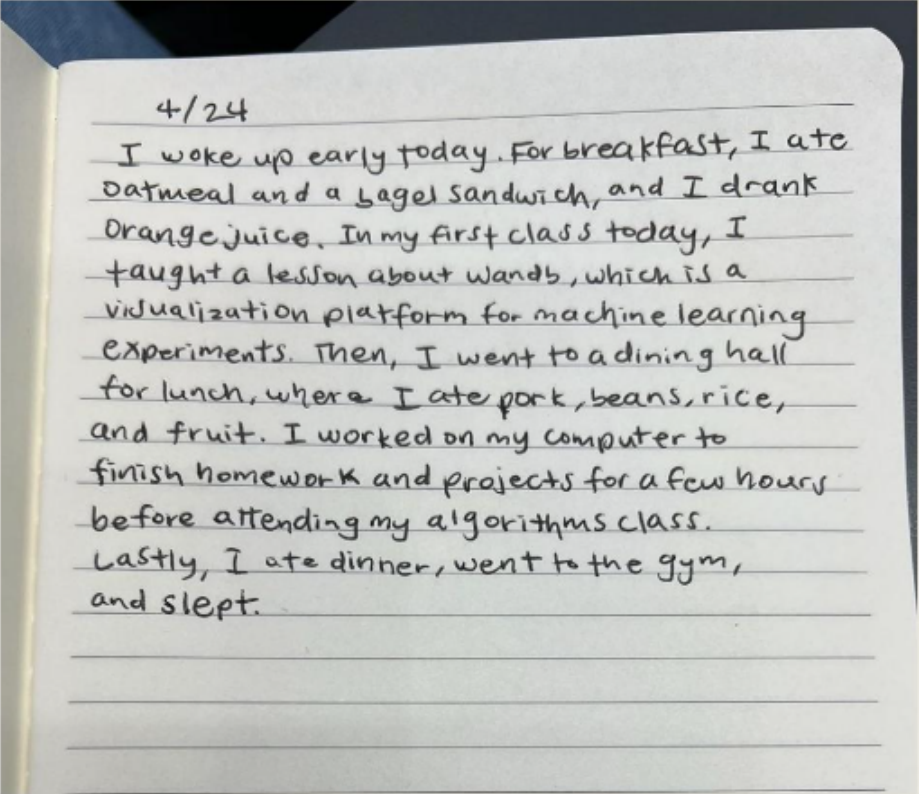 4/24
I woke up early today. For breakfast, I ate
oatmeal and a bagel sandwich, and I drank
orange juice. In my first class today, I
taught a lesson about wandb, which is a
visualization platform for machine learning
experiments. Then, I went to a dining hall
for lunch, where I ate pork, beans, rice,
and fruit. I worked on my computer to
finish homework and projects for a few hours
before attending my algorithms class.
Lastly, I ate dinner, went to the gym,
and slept.